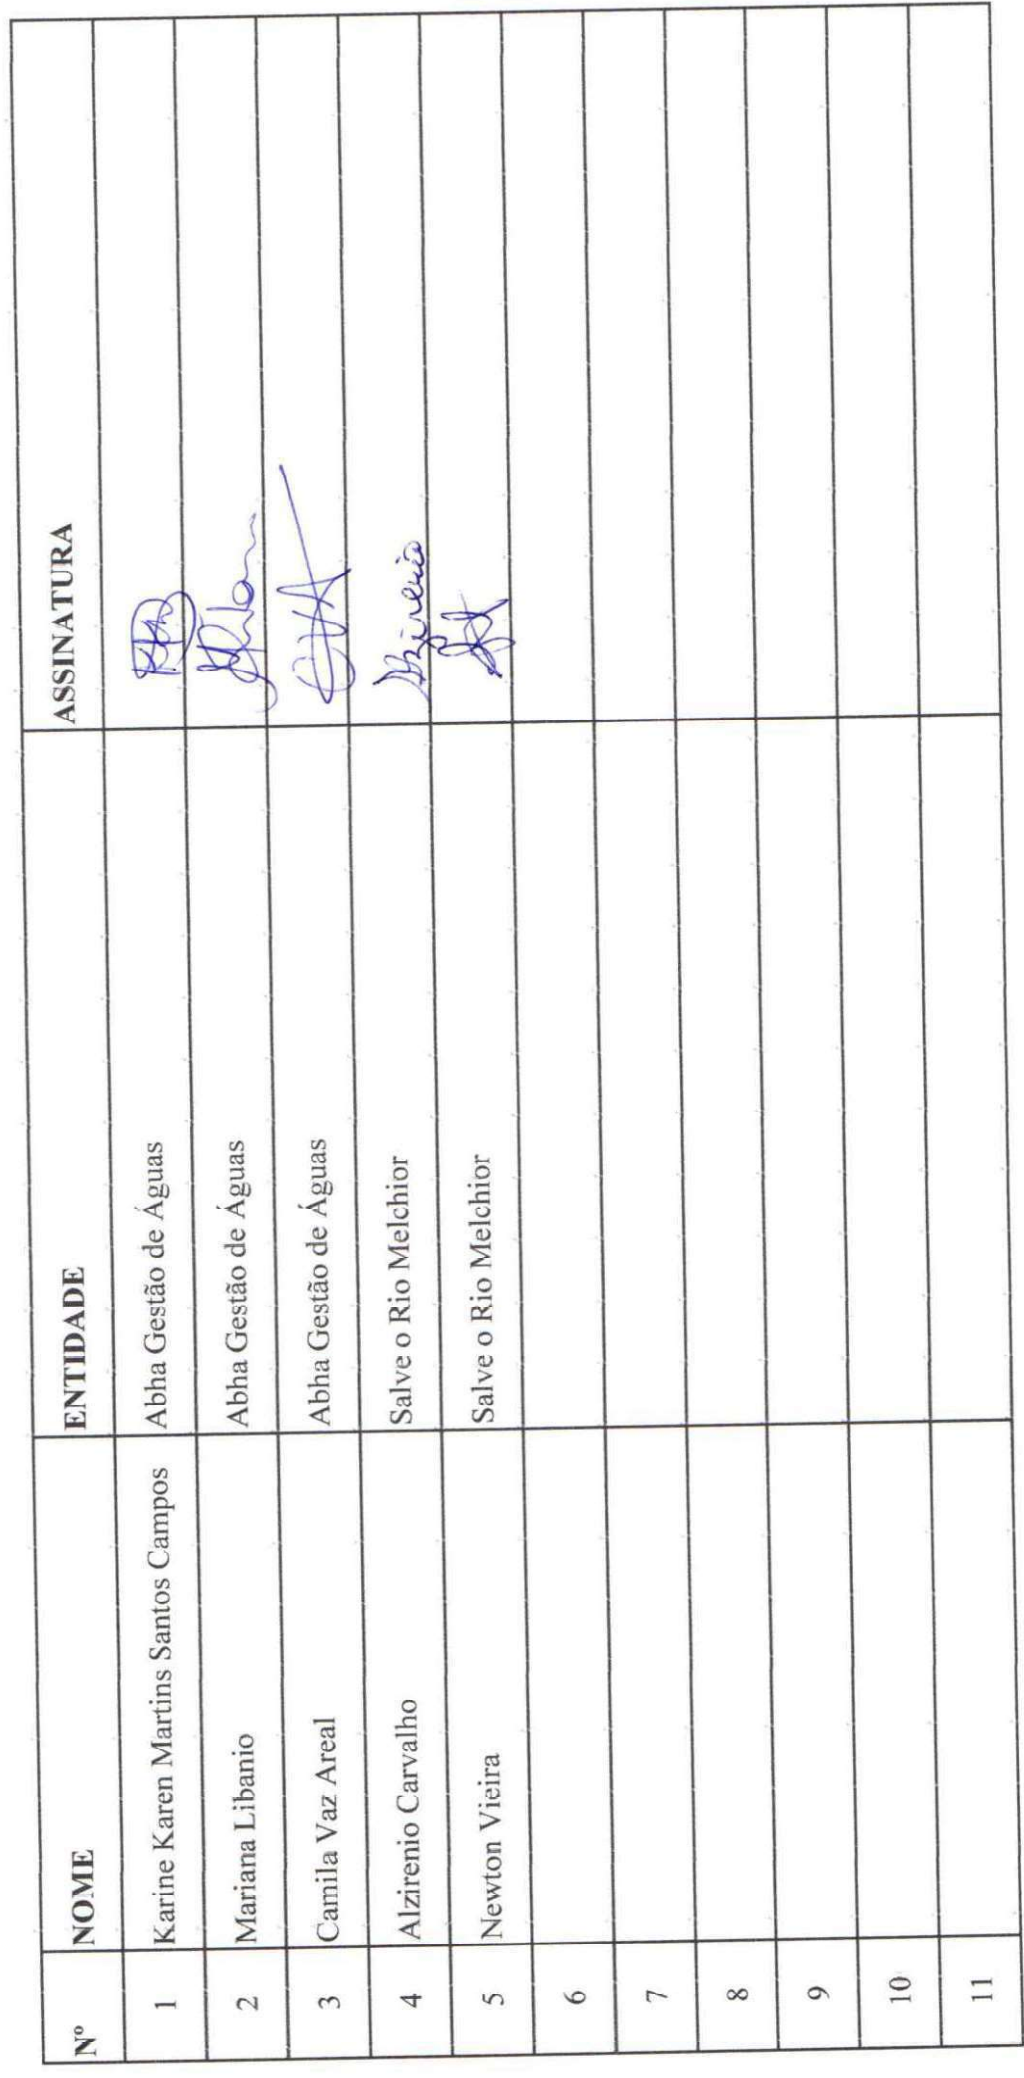 Nº NOME ENTIDADE ASSINATURA
1 Karine Karen Martins Santos Campos Abha Gestão de Águas
2 Mariana Libanio Abha Gestão de Águas
3 Camila Vaz Areal Abha Gestão de Águas
4 Alzirenio Carvalho Salve o Rio Melchior
5 Newton Vieira Salve o Rio Melchior
6
7
8
9
10
11